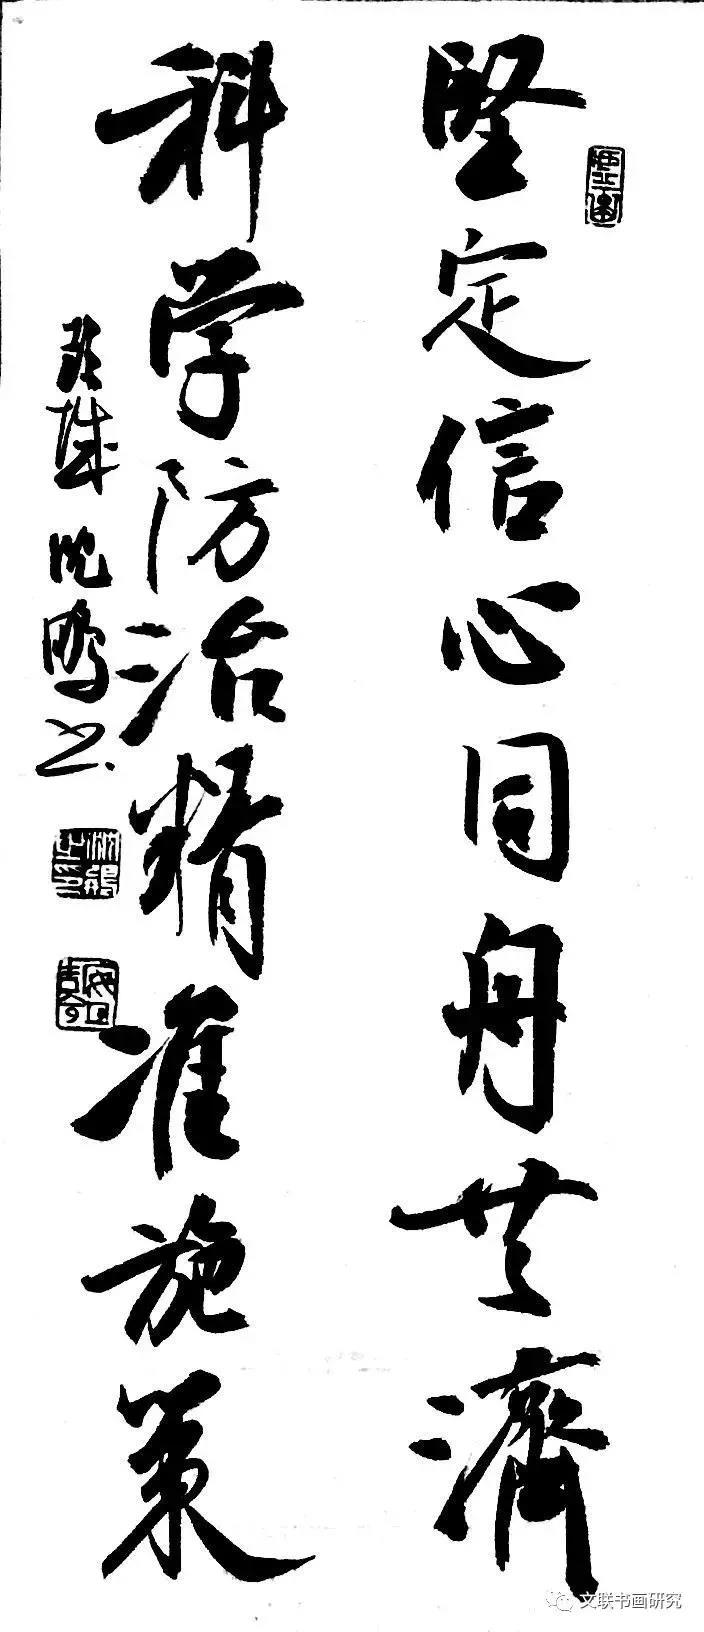 堅定信心同舟共濟
科学防治精准施策
沈鹏书
文联书画研究